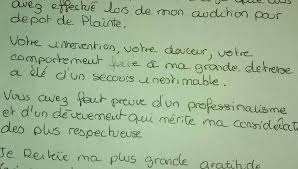 avez effectué lors de mon audition pour
depot de Plainte.
Votre intervention, votre douceur, votre
comportement face à ma grande detresse
a élé d'un secours inestimable.
Vous avez fait preuve d'un professionalisme
et d'un dévouement qui mérite ma consideration
des plus respectueuse
Je ma plus grande gratitude